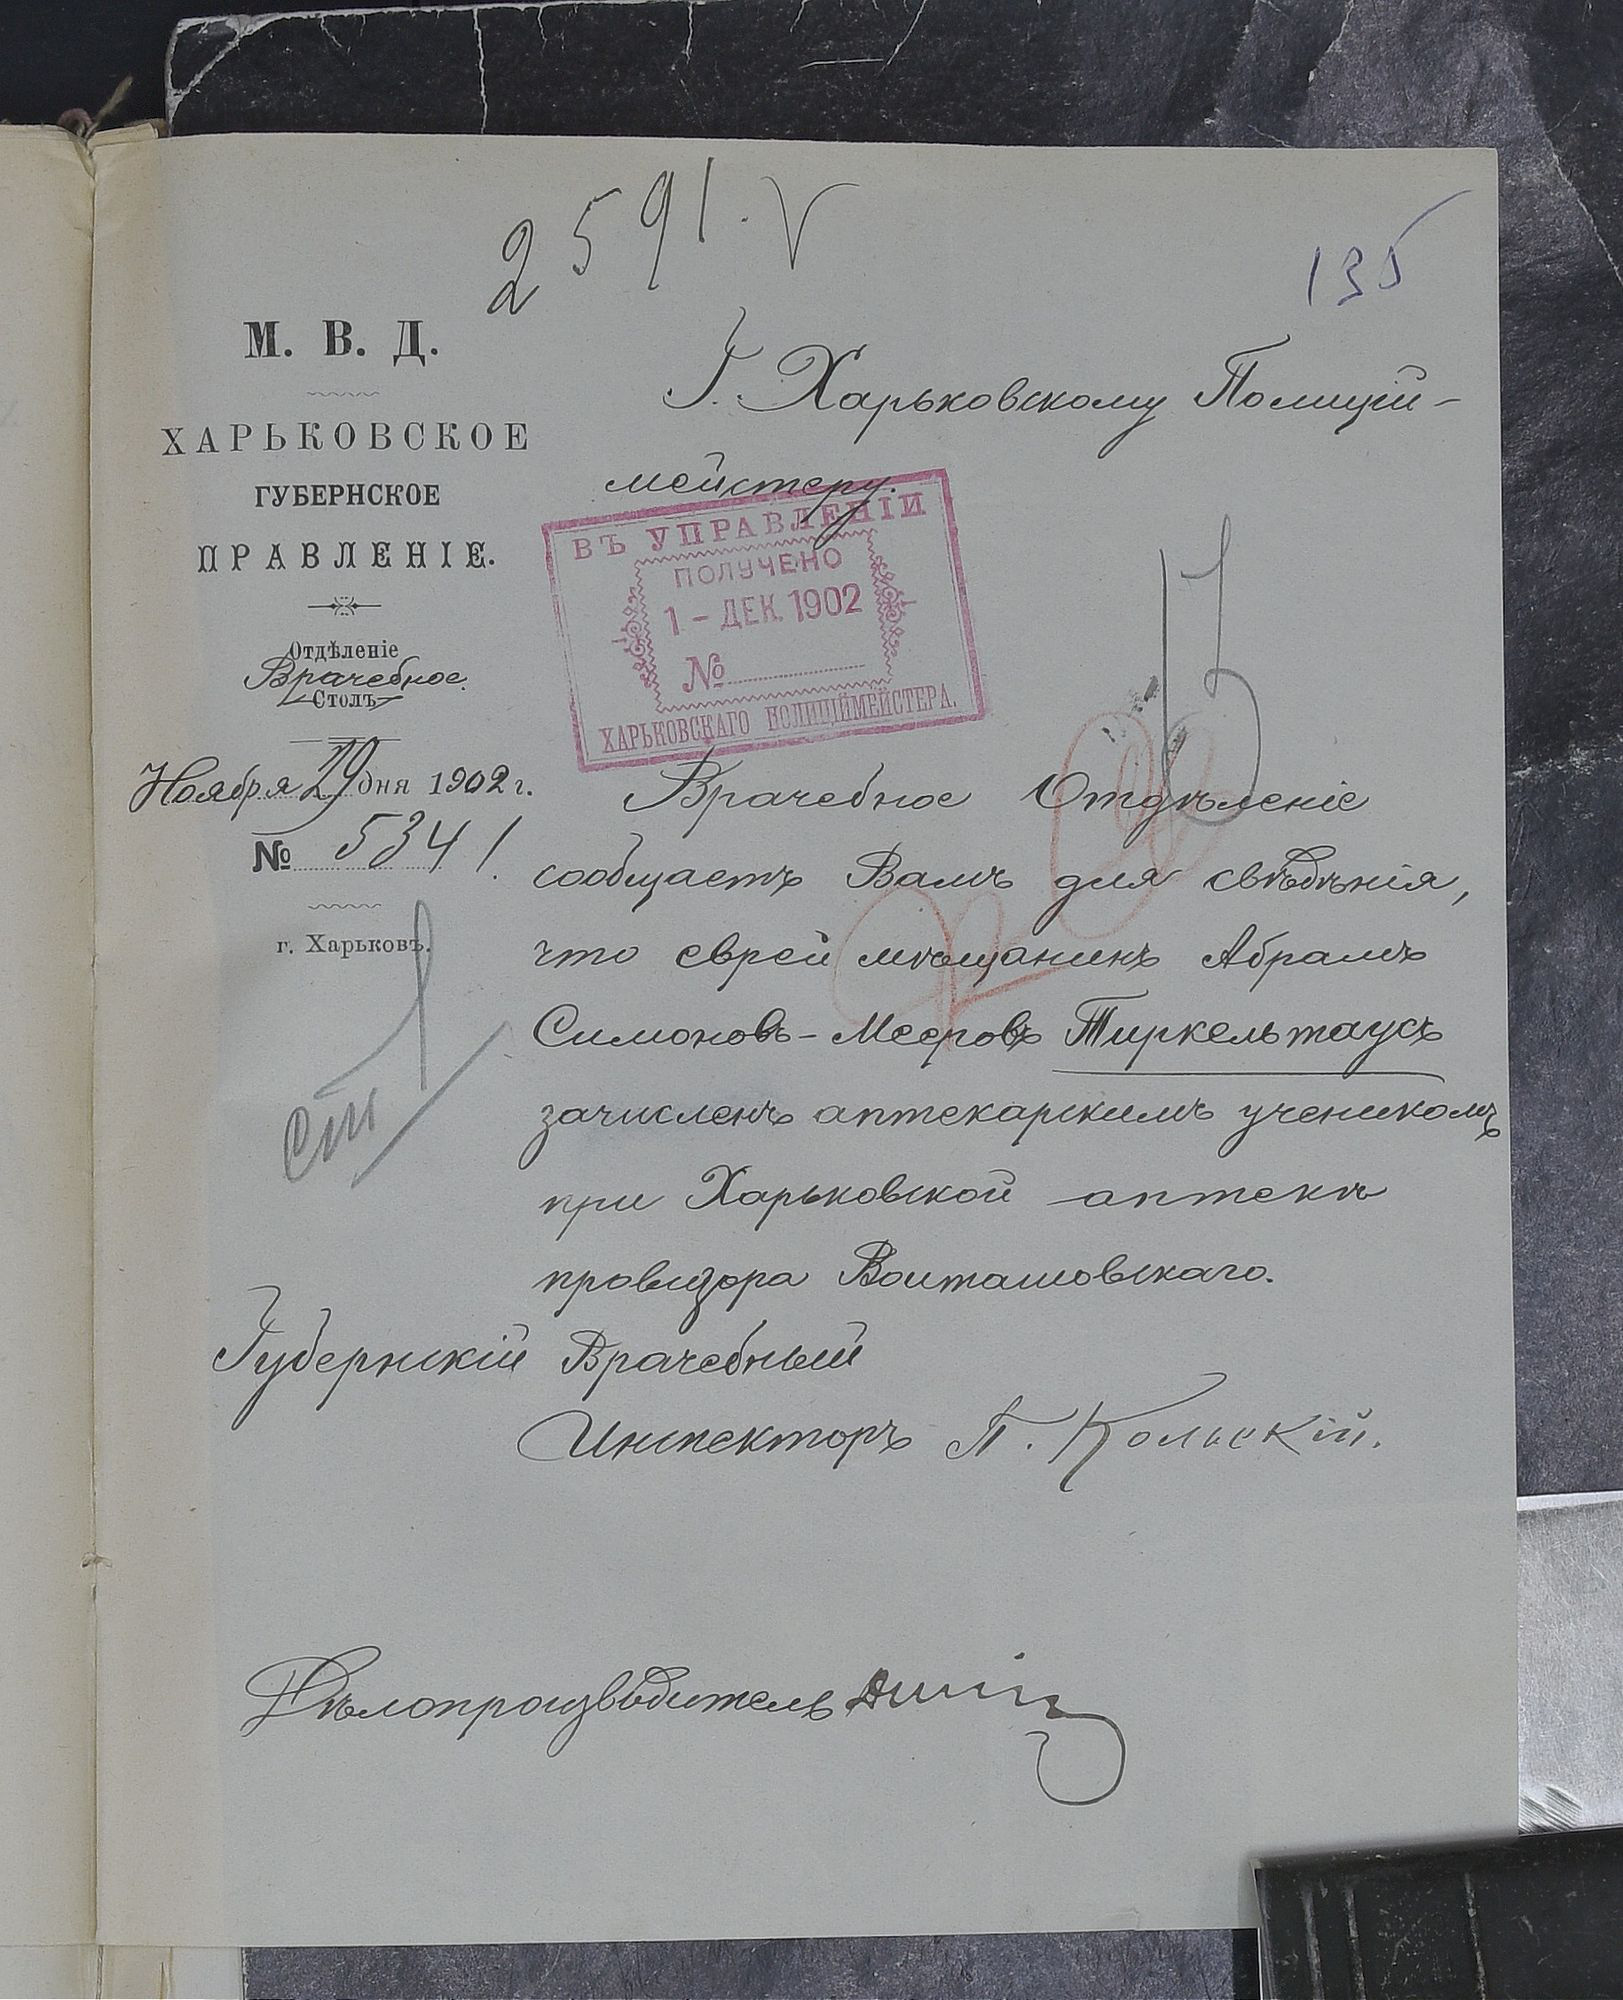 2591.
135
М. В. Д.
ХАРЬКОВСКОЕ
ГУБЕРНСКОЕ
ПРАВЛЕНІЕ.
Отдѣленіе
Врачебное.
Столъ
Ноября 29 дня 1902 г.
№ 5341.
г. Харьковъ.
Г. Харьковскому Полицій-
мейстеру.
ВЪ УПРАВЛЕНІИ
ПОЛУЧЕНО
1 - ДЕК. 1902
№
ХАРЬКОВСКАГО ПОЛИЦІЙМЕЙСТЕРА.
Врачебное Отдѣленіе
сообщаетъ Вамъ для свѣдѣнія,
что еврей мѣщанинъ Абрамъ
Симоновъ-Мееровъ Тиркельтаусъ
зачисленъ аптекарскимъ ученикомъ
при Харьковской аптекѣ
провизора Воиташовскаго.
Губернскій Врачебный
Инспекторъ П. Кольскій.
Дѣлопроизводитель